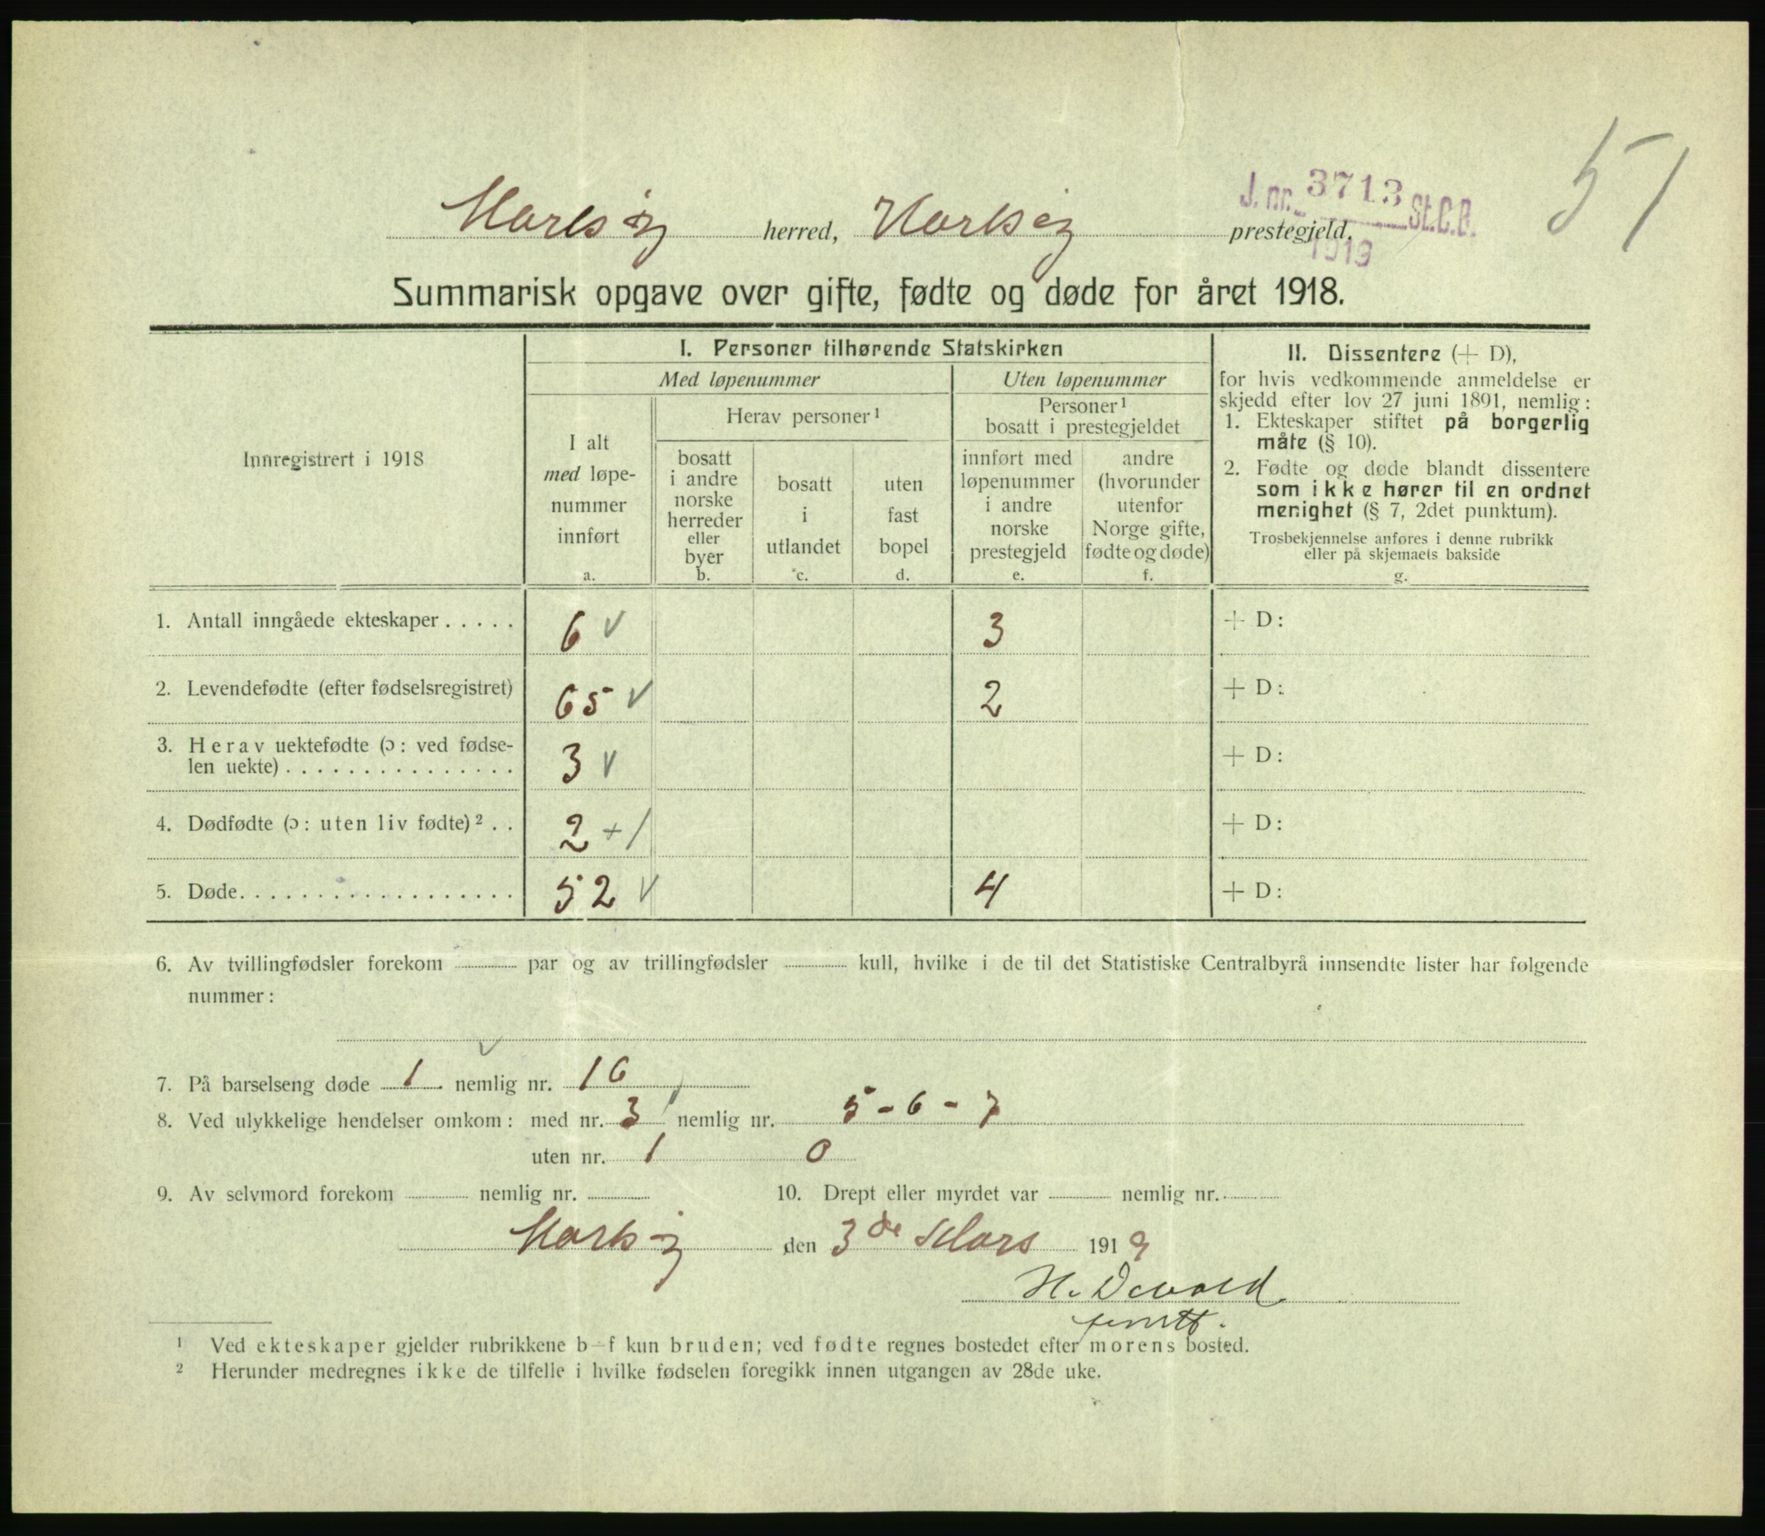 51
J. nr. 3713 St.C.B.
1919
herred, prestegjeld.
Summarisk opgave over gifte, fødte og døde for året 1918.
Innregistrert i 1918
I. Personer tilhørende Statskirken
Med løpenummer
Uten løpenummer
I alt
med løpe-
nummer
innført
a.
Herav personer¹
bosatt
i andre
norske
herreder
eller
byer
b.
bosatt
i
utlandet
c.
uten
fast
bopel
d.
Personer¹
bosatt i prestegjeldet
innført med
løpenummer
i andre
norske
prestegjeld
e.
andre
(hvorunder
utenfor
Norge gifte,
fødte og døde)
f.
II. Dissentere (+ D),
for hvis vedkommende anmeldelse er
skjedd efter lov 27 juni 1891, nemlig:
1. Ekteskaper stiftet på borgerlig
måte (§ 10).
2. Fødte og døde blandt dissentere
som ikke hører til en ordnet
menighet (§ 7, 2det punktum).
Trosbekjennelse anføres i denne rubrikk
eller på skjemaets bakside
g.
1. Antall inngåede ekteskaper . . . . . 6 √ 3 + D:
2. Levendefødte (efter fødselsregistret) 65 √ 2 + D:
3. Herav uektefødte (ɔ: ved fødse-
len uekte) . . . . . . . . . . . . . . . 3 √ + D:
4. Dødfødte (ɔ: uten liv fødte)² . . 2 + 1 + D:
5. Døde. . . . . . . . . . . . . . . . . . 52 √ 4 + D:
6. Av tvillingfødsler forekom par og av trillingfødsler kull, hvilke i de til det Statistiske Centralbyrå innsendte lister har følgende
nummer:
7. På barselseng døde 1 nemlig nr. 16
8. Ved ulykkelige hendelser omkom: med nr. 3 nemlig nr. 5 - 6 - 7
uten nr. 1 0
9. Av selvmord forekom nemlig nr. 10. Drept eller myrdet var nemlig nr.
den 3de Mars 1919
¹ Ved ekteskaper gjelder rubrikkene b–f kun bruden; ved fødte regnes bostedet efter morens bosted.
² Herunder medregnes ikke de tilfelle i hvilke fødselen foregikk innen utgangen av 28de uke.